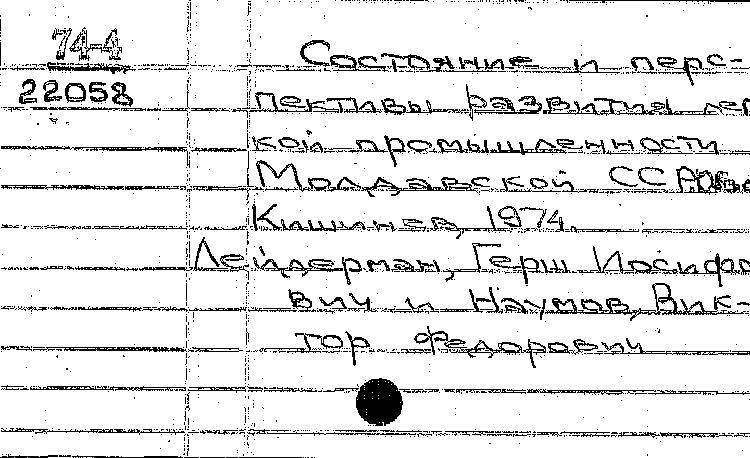 74-4
22058
Состояние и перс-
пективы развития лег
кой промышленности
Молдавской ССР.
Кишинев, 1974.
Лейдерман, Герш Иосифо
вич и Наумов, Вик-
тор Федорович